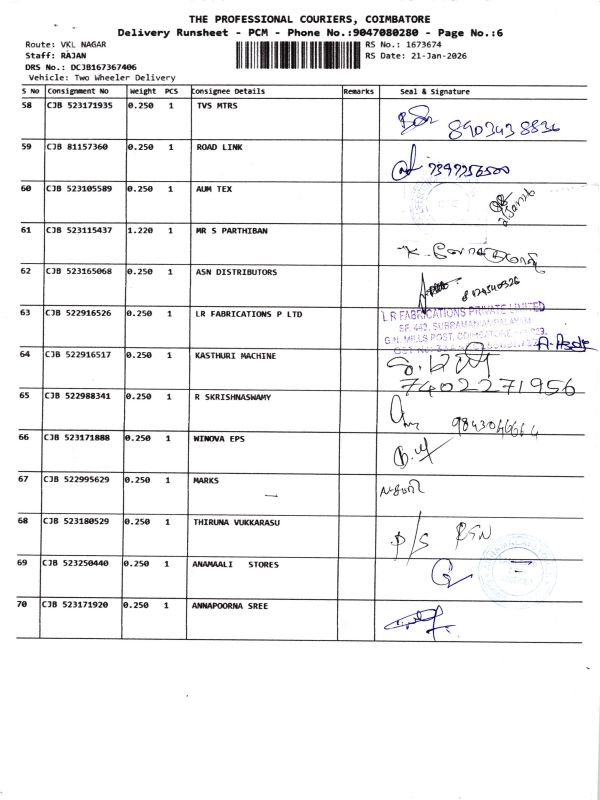 THE PROFESSIONAL COURIERS, COIMBATORE
Delivery Runsheet - PCM - Phone No.:9047080280 - Page No.:6
Route: VKL NAGAR
Staff: RAJAN
DRS No.: DCJB167367406
Vehicle: Two Wheeler Delivery
RS No.: 1673674
RS Date: 21-Jan-2026
S No Consignment No Weight PCS Consignee Details Remarks Seal & Signature
58 CJB 523171935 0.250 1 TVS MTRS
8903438836
59 CJB 81157360 0.250 1 ROAD LINK
7397756500
60 CJB 523105589 0.250 1 AUM TEX
61 CJB 523115437 1.220 1 MR S PARTHIBAN
62 CJB 523165068 0.250 1 ASN DISTRIBUTORS
63 CJB 522916526 0.250 1 LR FABRICATIONS P LTD
LR FABRICATIONS PRIVATE LIMITED
SF. 442, SUBRAMANIAMPALAYAM
G.N. MILLS POST, COIMBATORE
64 CJB 522916517 0.250 1 KASTHURI MACHINE
7402271956
65 CJB 522988341 0.250 1 R SKRISHNASWAMY
66 CJB 523171888 0.250 1 WINOVA EPS
67 CJB 522995629 0.250 1 MARKS
68 CJB 523180529 0.250 1 THIRUNA VUKKARASU
P/S
69 CJB 523250440 0.250 1 ANAMAALI STORES
70 CJB 523171920 0.250 1 ANNAPOORNA SREE